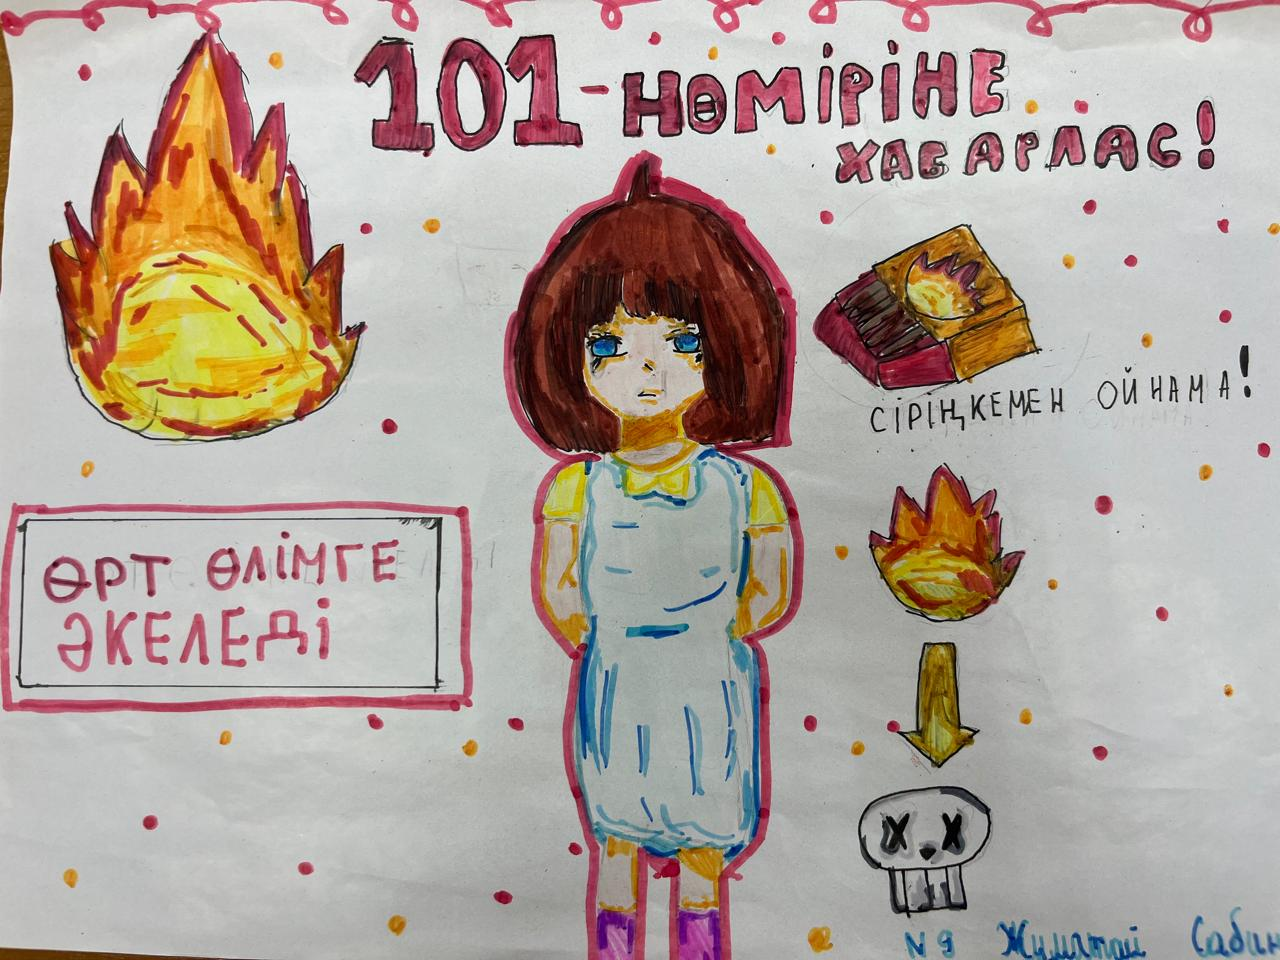 101-НӨМІРІНЕ
ХАБАРЛАС!
СІРІҢКЕМЕН ОЙНАМА!
ӨРТ ӨЛІМГЕ
ӘКЕЛЕДІ
N9 Жуматай Сабин